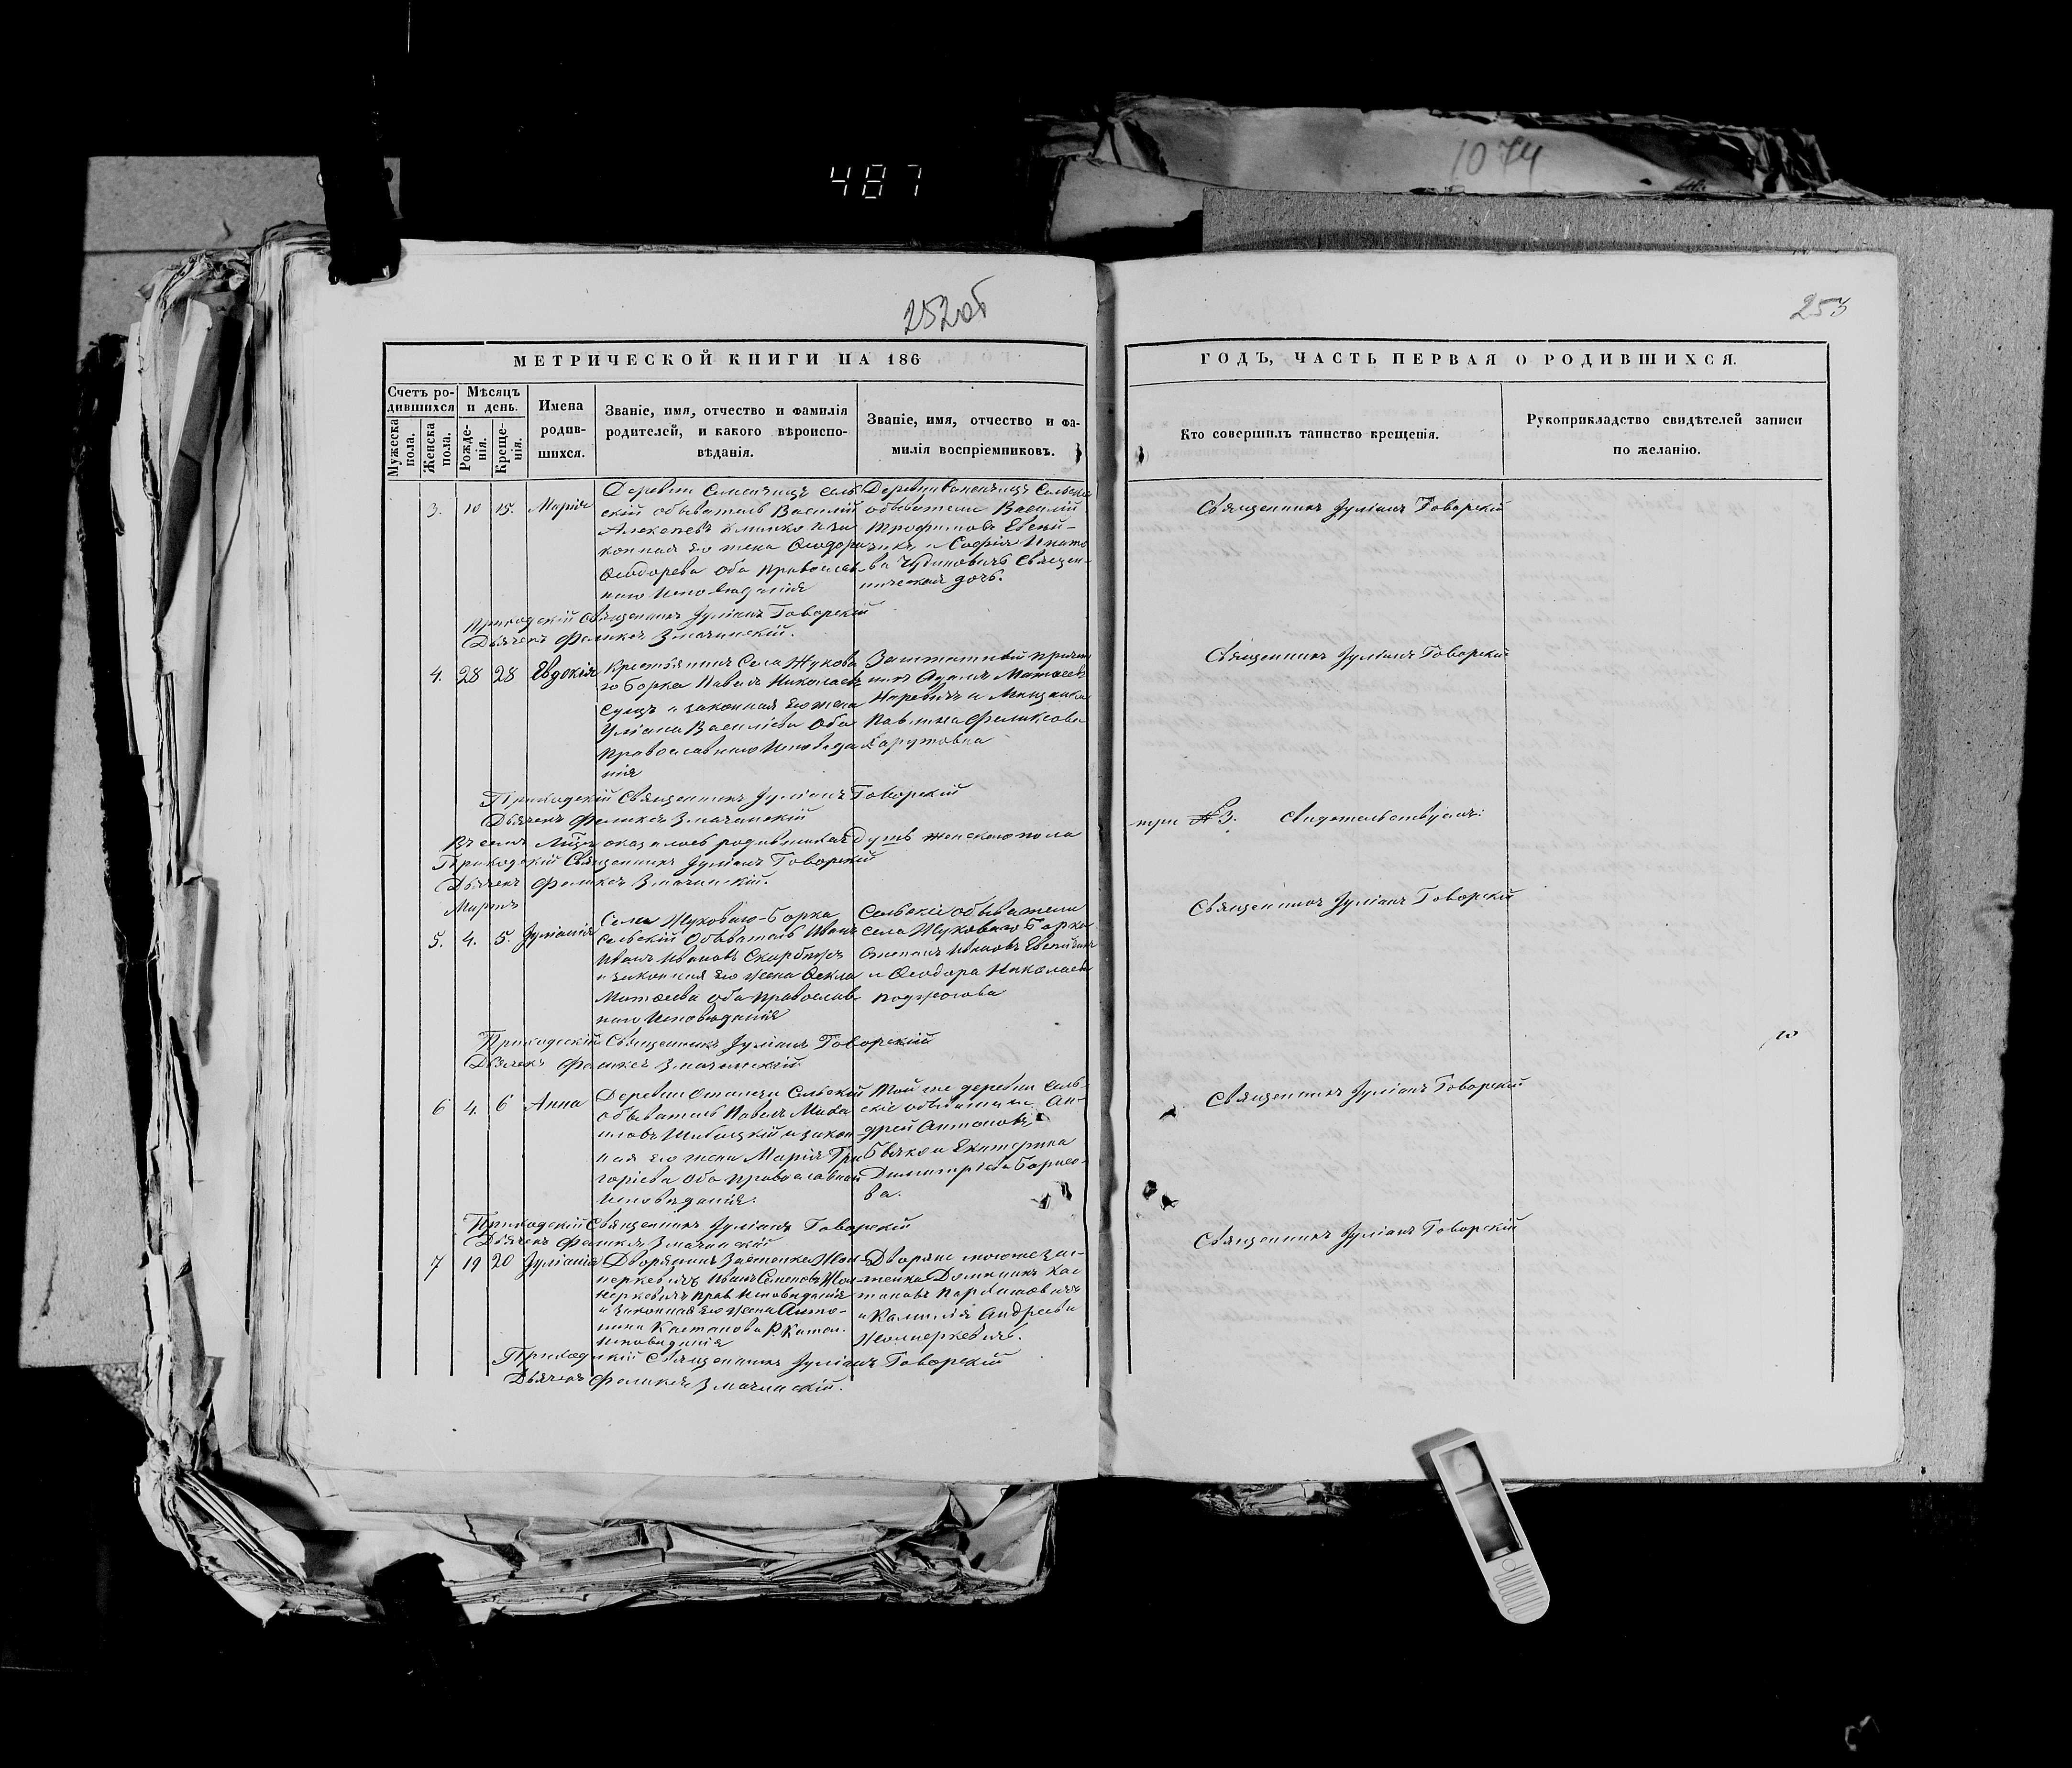 487
1074
252об
253
МЕТРИЧЕСКОЙ КНИГИ НА 186
ГОДЪ, ЧАСТЬ ПЕРВАЯ О РОДИВШИХСЯ.
Счетъ ро-
дившихся
Мужеска
пола.
Женска
пола.
Мѣсяцъ
и день.
Рожде-
нія.
Креще-
нія.
Имена
родив-
шихся.
Званіе, имя, отчество и фамилія
родителей, и какого вѣроиспо-
вѣданія.
Званіе, имя, отчество и фа-
милія воспріемниковъ.
Кто совершилъ таинство крещенія.
Рукоприкладство свидѣтелей записи
по желанію.
3. 10 15. Марія
Деревни сель
скій обыватель Василій
Алексѣевъ Климко и за
конная его жена Ѳеодора
Ѳеодорова оба православ
наго исповѣданія
Деревни Сельскіе
обыватели Василій
Трофимовъ
и Софія
священ-
ническая дочь.
Священникъ Іуліанъ Говорскій
Приходскій Священникъ Іуліанъ Говорскій
Дьячекъ Феликсъ Змачинскій.
4. 28 28 Евдокія
Крестьянинъ Села Жукова
го Борка Павелъ Николаевъ
Сущъ и законная его жена
Уліана Василіева Оба
Православнаго Исповѣда
нія
Заштатный причет
никъ Адамъ Матѳеевъ
и Мѣщанка
Павлина Феликсова
Священникъ Іуліанъ Говорскій
Приходскій Священникъ Іуліанъ Говорскій
Дьячекъ Феликсъ Змачинскій
Въ семъ оказалось родившихся душъ женскаго пола
три № 3. Свидетельствуемъ:
Приходскій Священникъ Іуліанъ Говорскій
Дьячекъ Феликсъ Змачинскій.
Мартъ
5. 4. 5. Іуліанія
Села Жуковаго-Борка
Сельскій Обыватель Иванъ
Ивановъ
и законная его жена Ѳекла
Матѳеева оба православ
наго Исповѣданія
Сельскіе обыватели
села Жуковаго Борка
Степанъ Ивановъ
и Ѳеодора Николаева
Священникъ Іуліанъ Говорскій
Приходскій Священникъ Іуліанъ Говорскій
Дьячекъ Феликсъ Змачинскій
6 4. 6 Анна
Деревни Сельскій
обыватель Павелъ Михаи
ловъ и закон
ная его жена Марія Гри
горіева Оба православной
исповѣданія.
Той же деревни сель-
скіе обыватели Ан-
дрей Антоновъ
и Екатерина
Димитріева Борисо-
ва.
Священникъ Іуліанъ Говорскій
Приходскій Священникъ Іуліанъ Говорскій
Дьячекъ Феликсъ Змачинскій
7 19 20 Іуліанія
Дворянинъ Застенка Жом-
перкевичъ Иванъ Семеновъ Жом-
перкевичъ Прав Исповѣданія
и Законная его жена Анто-
нина Каетанова Р. Катол.
исповѣданія
Дворяне тогоже зас-
тенка Доминикъ Кае
тановъ
и Камилія Андреева
Жомперкевичъ.
Священникъ Іуліанъ Говорскій
Приходскій Священникъ Іуліанъ Говорскій
Дьячекъ Феликсъ Змачинскій.